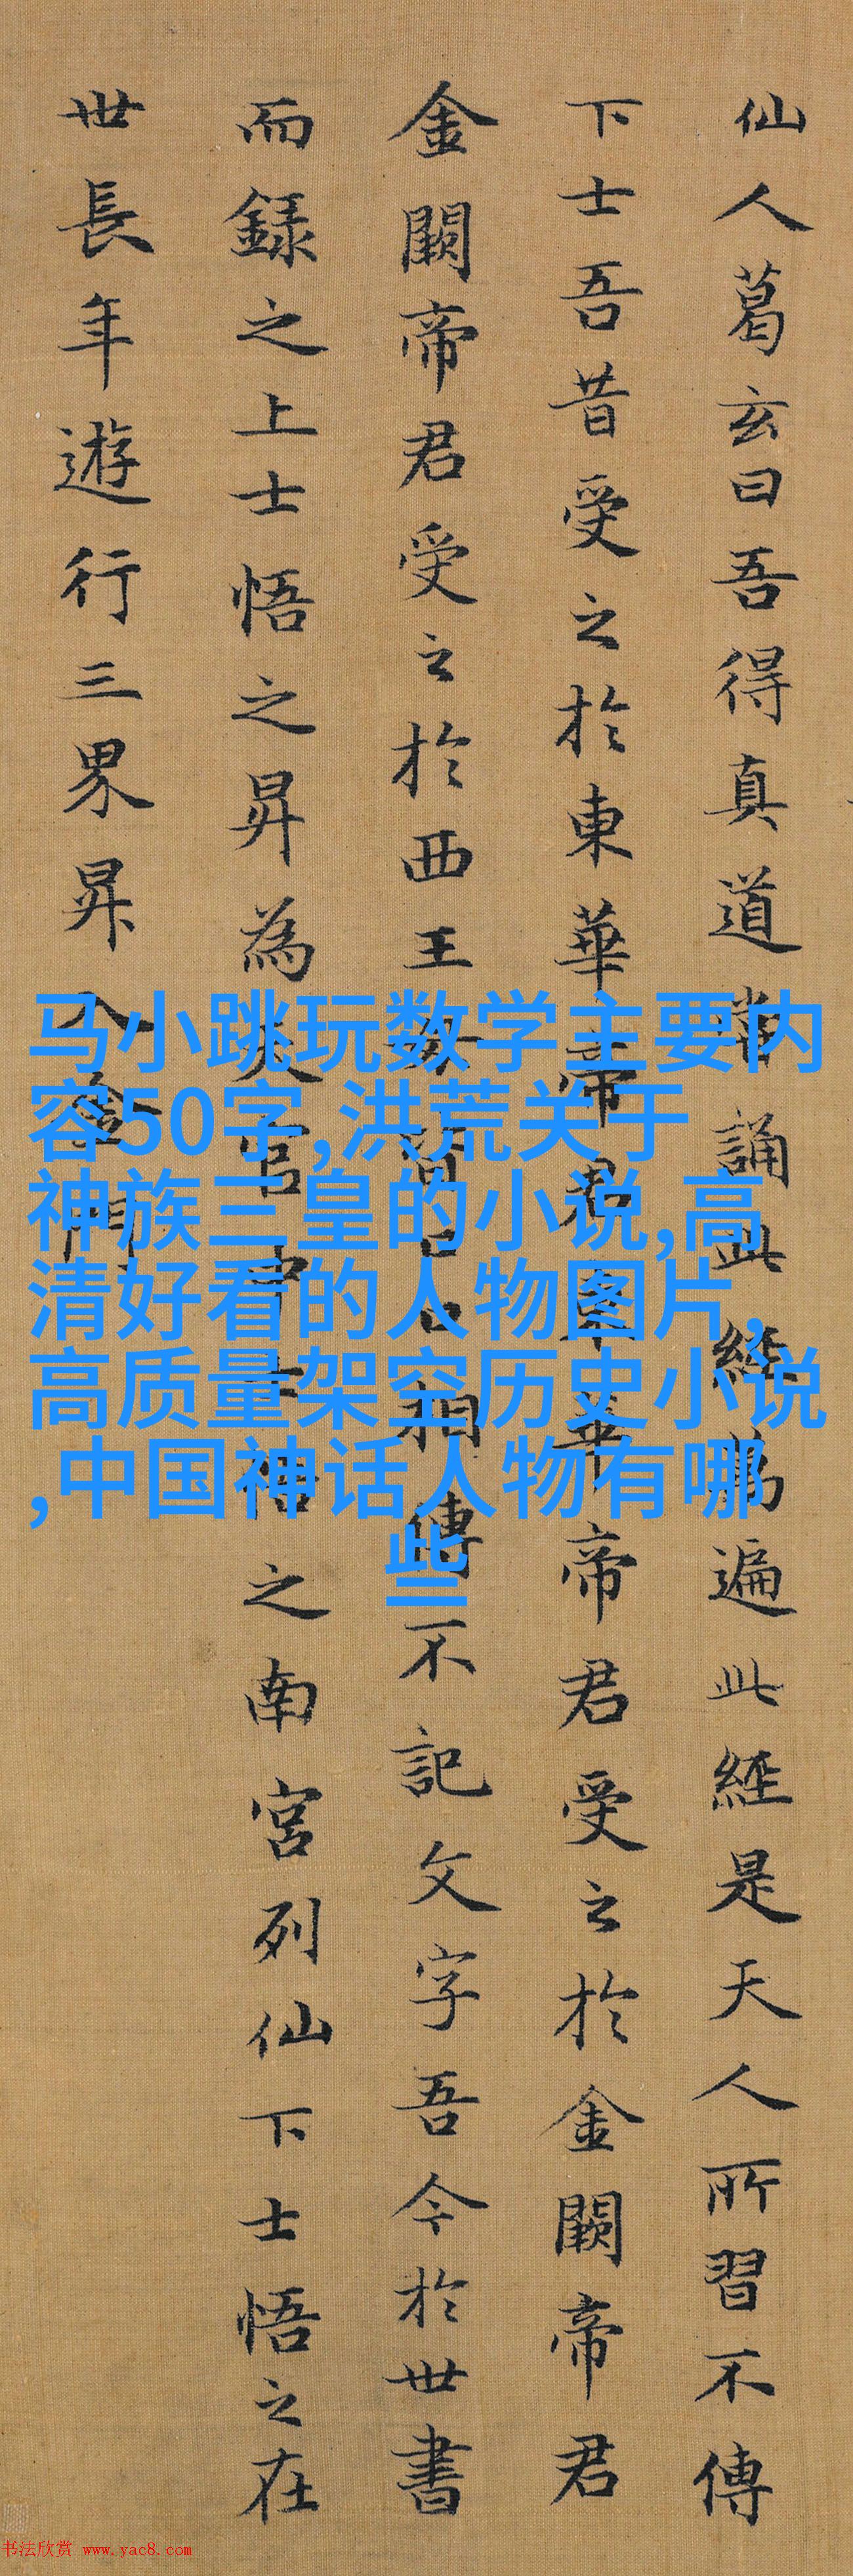 仙人葛玄曰吾得真道常誦此經萬遍此經是天人所習不傳
下士吾昔受之於東華帝君東華帝君受之於金闕帝君
金闕帝君受之於西王母皆口口相傳不記文字吾今於世書
而録之上士悟之昇為天官中士悟之南宮列仙下士悟之在
世長年遊行三界昇入金門
马小跳玩数学主要内
容50字,洪荒关于
神族三皇的小说,高
清好看的人物图片,
高质量架空历史小说
,中国神话人物有哪
些
书法欣赏 www.yac8.com